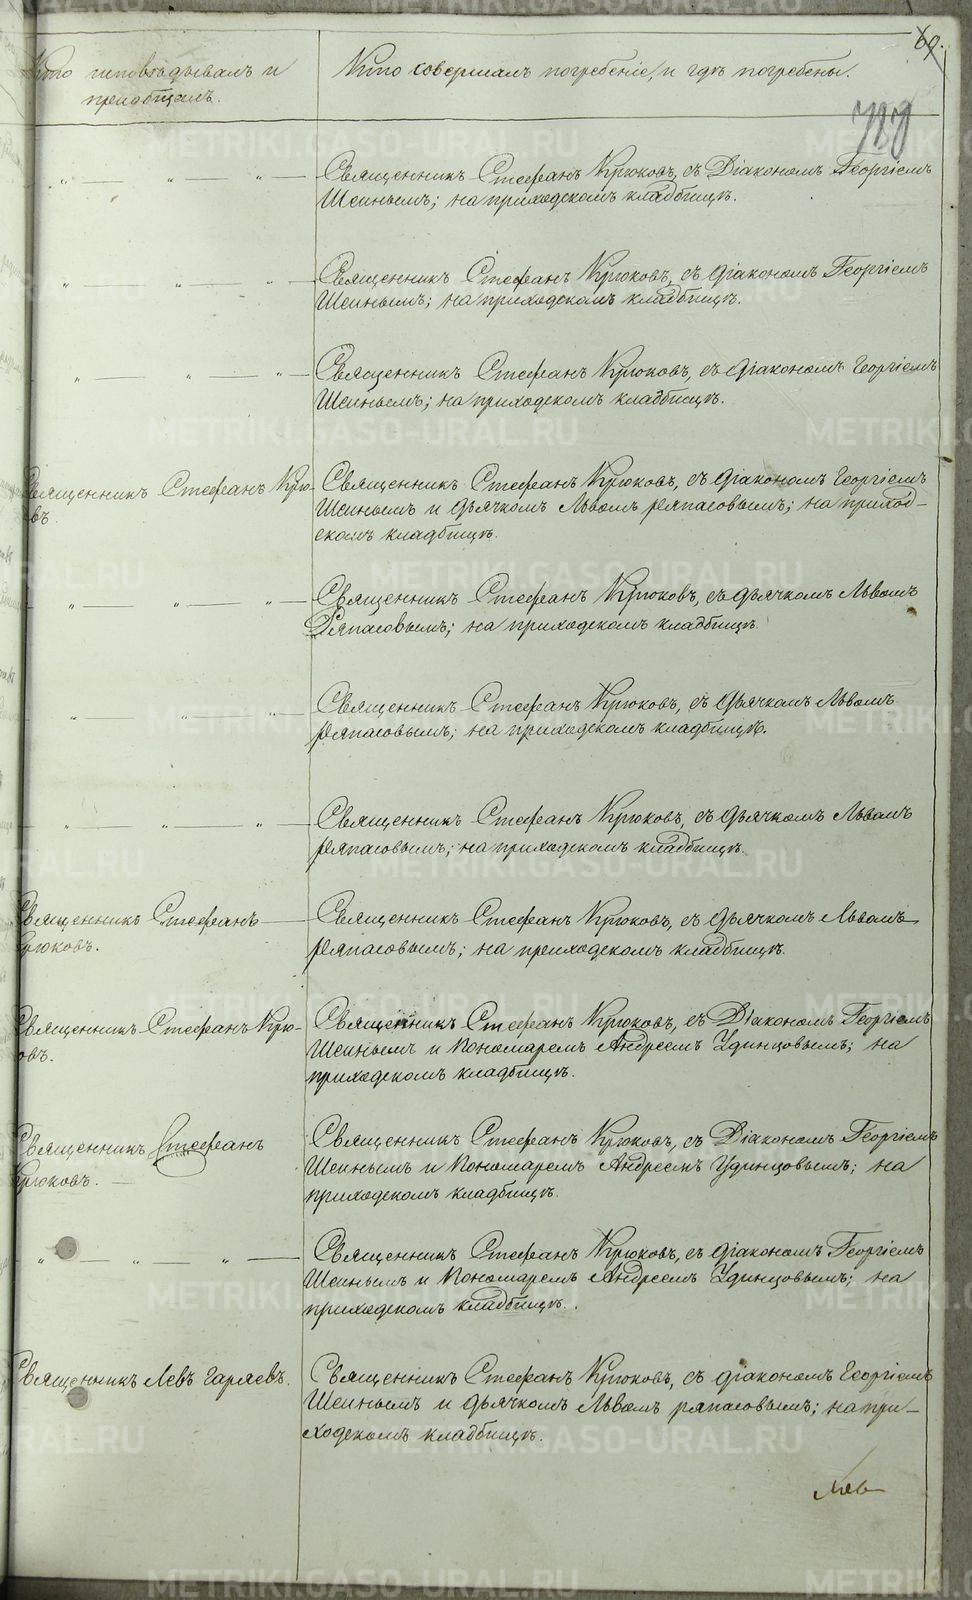 60.
Кто исповѣдывалъ и
пріобщалъ.
Кто совершалъ погребеніе, и гдѣ погребены.
Священникъ Стефанъ Крюковъ, съ Діакономъ Георгіемъ
Шеинымъ; на приходскомъ кладбищѣ.
Священникъ Стефанъ Крюковъ, съ діакономъ Георгіемъ
Шеинымъ; на приходскомъ кладбищѣ.
Священникъ Стефанъ Крюковъ, съ діакономъ Георгіемъ
Шеинымъ; на приходскомъ кладбищѣ.
Священникъ Стефанъ Крю-
въ.
Священникъ Стефанъ Крюковъ, съ діакономъ Георгіемъ
Шеинымъ и дьячкомъ Львомъ Ряпасовымъ; на приход-
скомъ кладбищѣ.
Священникъ Стефанъ Крюковъ, съ дьячкомъ Львомъ
Ряпасовымъ; на приходскомъ кладбищѣ.
Священникъ Стефанъ Крюковъ, съ дьячкомъ Львомъ
Ряпасовымъ; на приходскомъ кладбищѣ.
Священникъ Стефанъ Крюковъ, съ дьячкомъ Львомъ
Ряпасовымъ; на приходскомъ кладбищѣ.
Священникъ Стефанъ
рюковъ.
Священникъ Стефанъ Крюковъ, съ дьячкомъ Львомъ
Ряпасовымъ; на приходскомъ кладбищѣ.
Священникъ Стефанъ Крю-
овъ.
Священникъ Стефанъ Крюковъ, съ Діакономъ Георгіемъ
Шеинымъ и Пономаремъ Андреемъ Удинцовымъ; на
приходскомъ кладбищѣ.
Священникъ Стефанъ
Крюковъ.
Священникъ Стефанъ Крюковъ, съ Діакономъ Георгіемъ
Шеинымъ и Пономаремъ Андреемъ Удинцовымъ; на
приходскомъ кладбищѣ.
Священникъ Стефанъ Крюковъ, съ діакономъ Георгіемъ
Шеинымъ и Пономаремъ Андреемъ Удинцовымъ; на
приходскомъ кладбищѣ.
Священникъ Левъ Гаряевъ.
Священникъ Стефанъ Крюковъ, съ діакономъ Георгіемъ
Шеинымъ и дьячкомъ Львомъ Ряпасовымъ; на при-
ходскомъ кладбищѣ.
METRIKI.GASO-URAL.RU